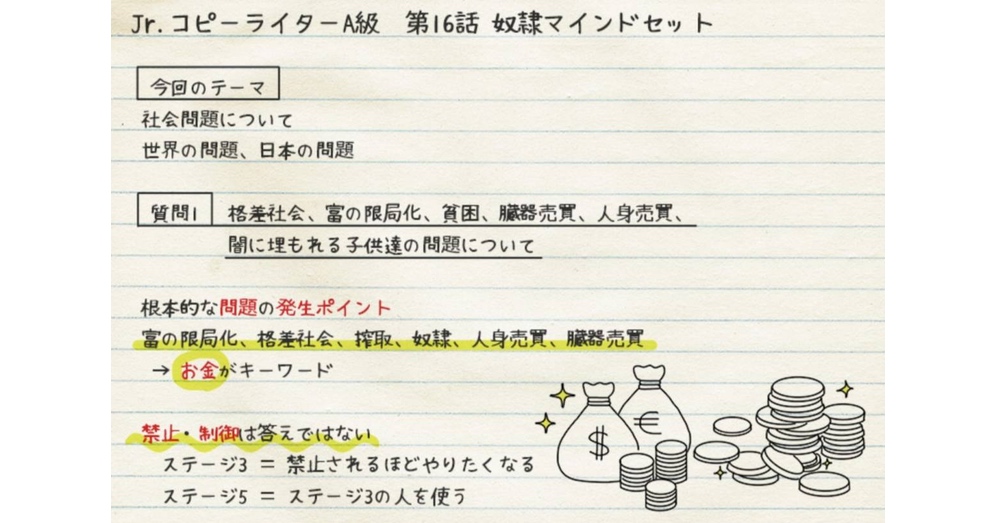 Jr.コピーライターA級 第16話 奴隷マインドセット
今回のテーマ
社会問題について
世界の問題、日本の問題
質問1 格差社会、富の限局化、貧困、臓器売買、人身売買、
闇に埋もれる子供達の問題について
根本的な問題の発生ポイント
富の限局化、格差社会、搾取、奴隷、人身売買、臓器売買
→ お金がキーワード
禁止・制御は答えではない
ステージ3 = 禁止されるほどやりたくなる
ステージ5 = ステージ3の人を使う
$
€